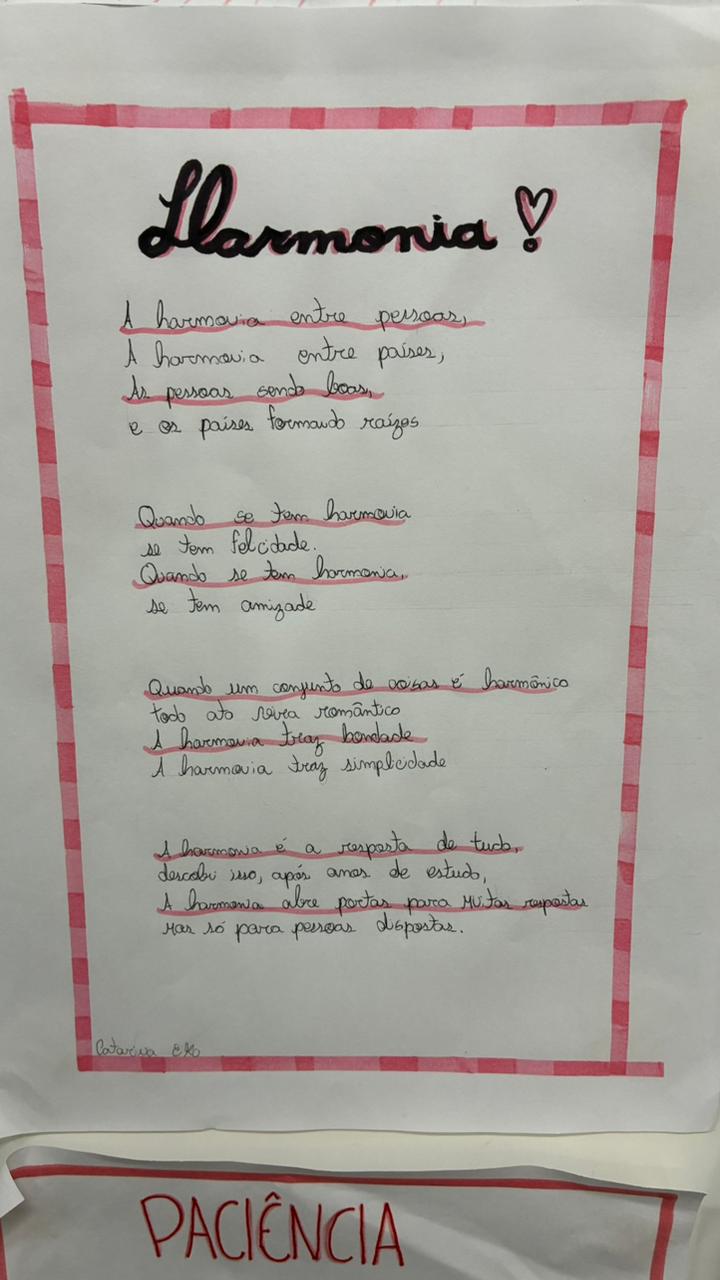 Harmonia!
A harmonia entre pessoas,
A harmonia entre países,
As pessoas sendo boas,
e os países formando raízes
Quando se tem harmonia
se tem felicidade.
Quando se tem harmonia,
se tem amizade
Quando um conjunto de coisas é harmônico
todo ato vira romântico
A harmonia traz bondade
A harmonia traz simplicidade
A harmonia é a resposta de tudo,
descobri isso, após anos de estudo,
A harmonia abre portas para muitas respostas
mas só para pessoas dispostas.
Catarina
PACIÊNCIA